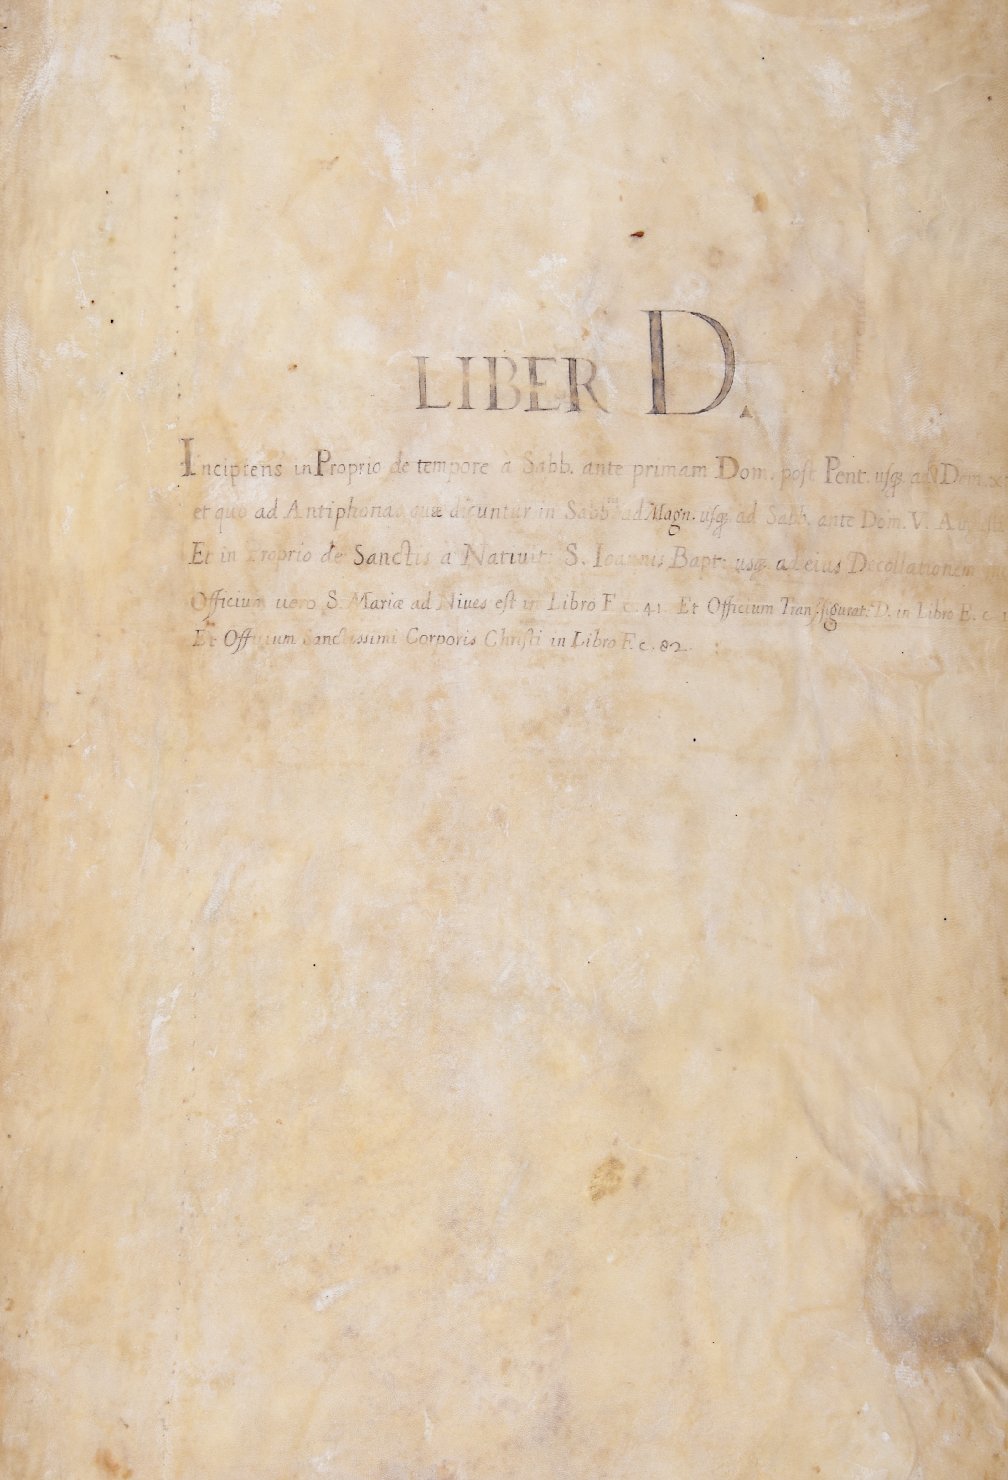 LIBER D.
Incipiens in Proprio de tempore a Sabb. ante primam Dom. post Pent. usq3 ad Dom.
et quo ad Antiphonas quæ dicuntur in Sabb. ad Magn. usq3 ad Sabb. ante Dom. V. Aug
Et in Proprio de Sanctis à Nativit. S. Ioannis Bapt. usq3 ad eius Decollationem
Officium uero S. Mariæ ad Nives est in Libro F c. 41. Et Officium Transfigurat. D. in Libro E. c.
Et Officium Sanctissimi Corporis Christi in Libro F. c. 82.